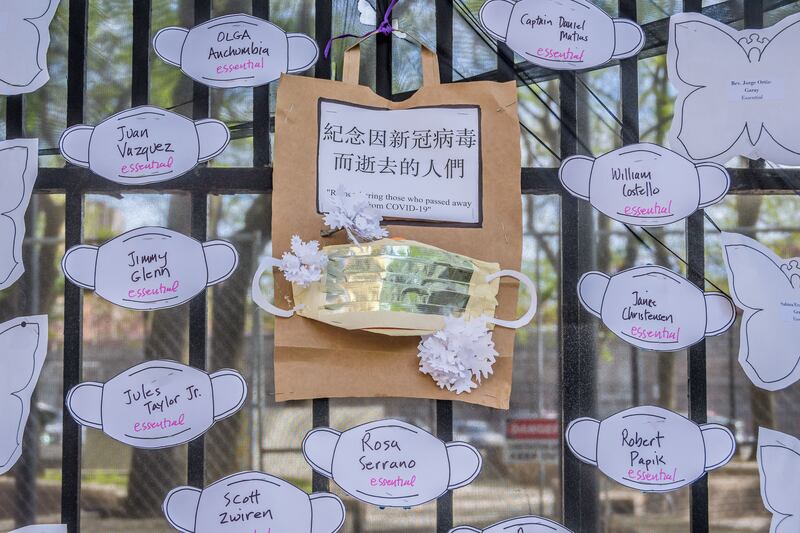 OLGA
Anchumbia
essential
Captain Daniel
Matias
essential
Rev. Jorge Ortiz-
Garay
Essential
Juan
Vazquez
essential
紀念因新冠病毒
而逝去的人們
those who passed away
from COVID-19"
William
Costello
essential
Jimmy
Glenn
essential
Janee
Christensen
essential
Jules
Taylor Jr.
essential
Rosa
Serrano
essential
Robert
Papik
essential
Scott
Zwiren
essential
DANGER